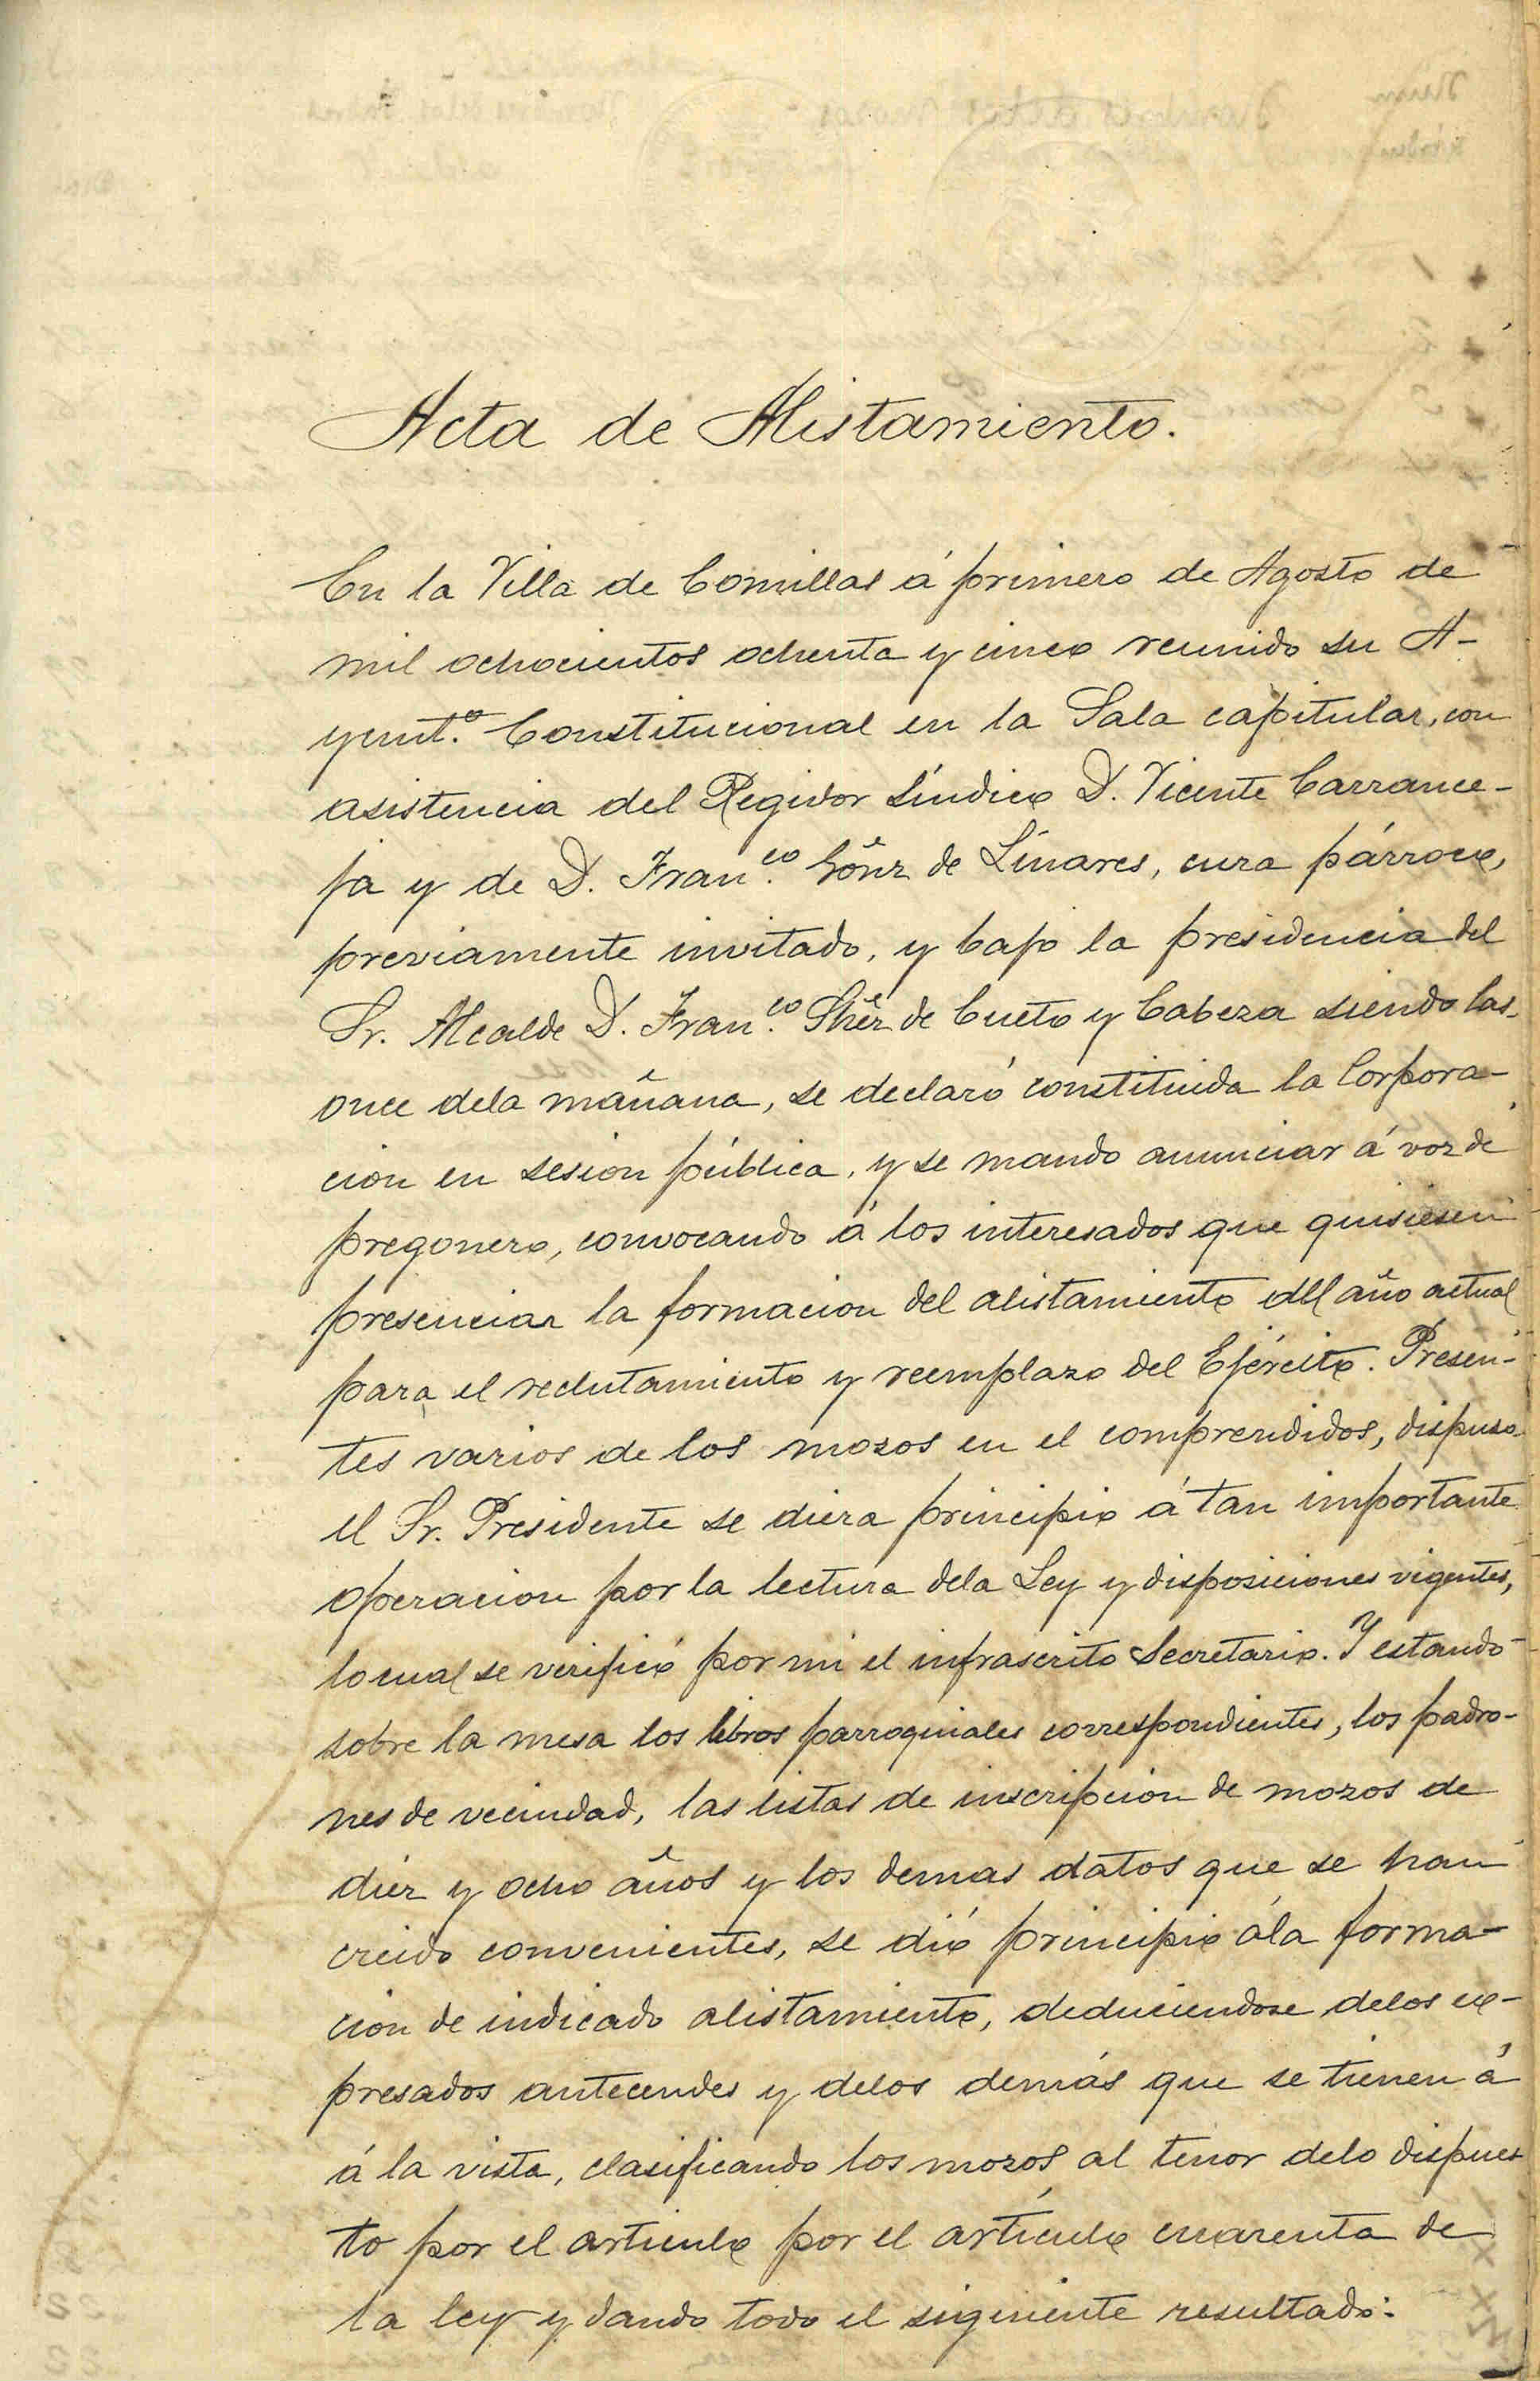 Acta de Alistamiento.
En la Villa de Comillas á primero de Agosto de
mil ochocientos ochenta y cinco reunido su A-
yunt.º Constitucional en la Sala capitular, con
asistencia del Regidor Síndico D. Vicente Carrance-
ja y de D. Fran.co Gönz de Linares, cura párroco,
previamente invitado, y bajo la presidencia del
Sr. Alcalde D. Fran.co Shez de Cueto y Cabeza siendo las
once dela mañana, se declaró constituida la Corpora-
cion en sesion pública, y se mando anunciar á voz de
pregonero, convocando á los interesados que quisiesen
presenciar la formacion del alistamiento del año actual
para el reclutamiento y reemplazo del Ejército. Presen-
tes varios de los mozos en el comprendidos, dispuso
el Sr. Presidente se diera principio á tan importante
operacion por la lectura dela Ley y disposiciones vigentes,
lo cual se verificó por mi el infrascrito Secretario. Y estando
sobre la mesa los libros parroquiales correspondientes, los padro-
nes de vecindad, las listas de inscripcion de mozos de
diez y ocho años y los demas datos que se han
creido convenientes, se dió principio ála forma-
cion de indicado alistamiento, deduciendose delos ex-
presados antecendes y delos demás que se tienen á
á la vista, clasificando los mozos al tenor delo dispues
to por el articulo por el artículo cuarenta de
la ley y dando todo el siguiente resultado: